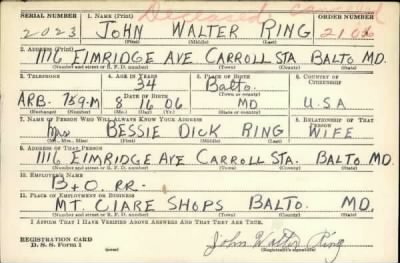 Deceased canceled
SERIAL NUMBER 1. NAME (Print) ORDER NUMBER
2023 JOHN WALTER RING 2106
(First) (Middle) (Last)
2. ADDRESS (Print)
1116 ElMRIDGE AVE CARROLL STA BALTO MD.
(Number and street or R. F. D. number) (Town) (County) (State)
3. TELEPHONE 4. AGE IN YEARS 5. PLACE OF BIRTH 6. COUNTRY OF CITIZENSHIP
34 Balto.
DATE OF BIRTH (Town or county)
ARB. 789-M 8 16 06 MD U.S.A
(Exchange) (Number) (Mo.) (Day) (Yr.) (State or country)
7. NAME OF PERSON WHO WILL ALWAYS KNOW YOUR ADDRESS 8. RELATIONSHIP OF THAT PERSON
Mrs BESSIE DICK RING WIFE
(Mr., Mrs., Miss) (First) (Middle) (Last)
9. ADDRESS OF THAT PERSON
1116 ElMRIDGE AVE CARROLL STA. BALTO MD.
(Number and street or R. F. D. number) (Town) (County) (State)
10. EMPLOYER'S NAME
B+O. RR.
11. PLACE OF EMPLOYMENT OR BUSINESS
MT. ClARE SHOPS BALTO. MD.
(Number and street or R. F. D. number) (Town) (County) (State)
I AFFIRM THAT I HAVE VERIFIED ABOVE ANSWERS AND THAT THEY ARE TRUE.
REGISTRATION CARD
D. S. S. Form 1 John Walter Ring
(Registrant's signature)